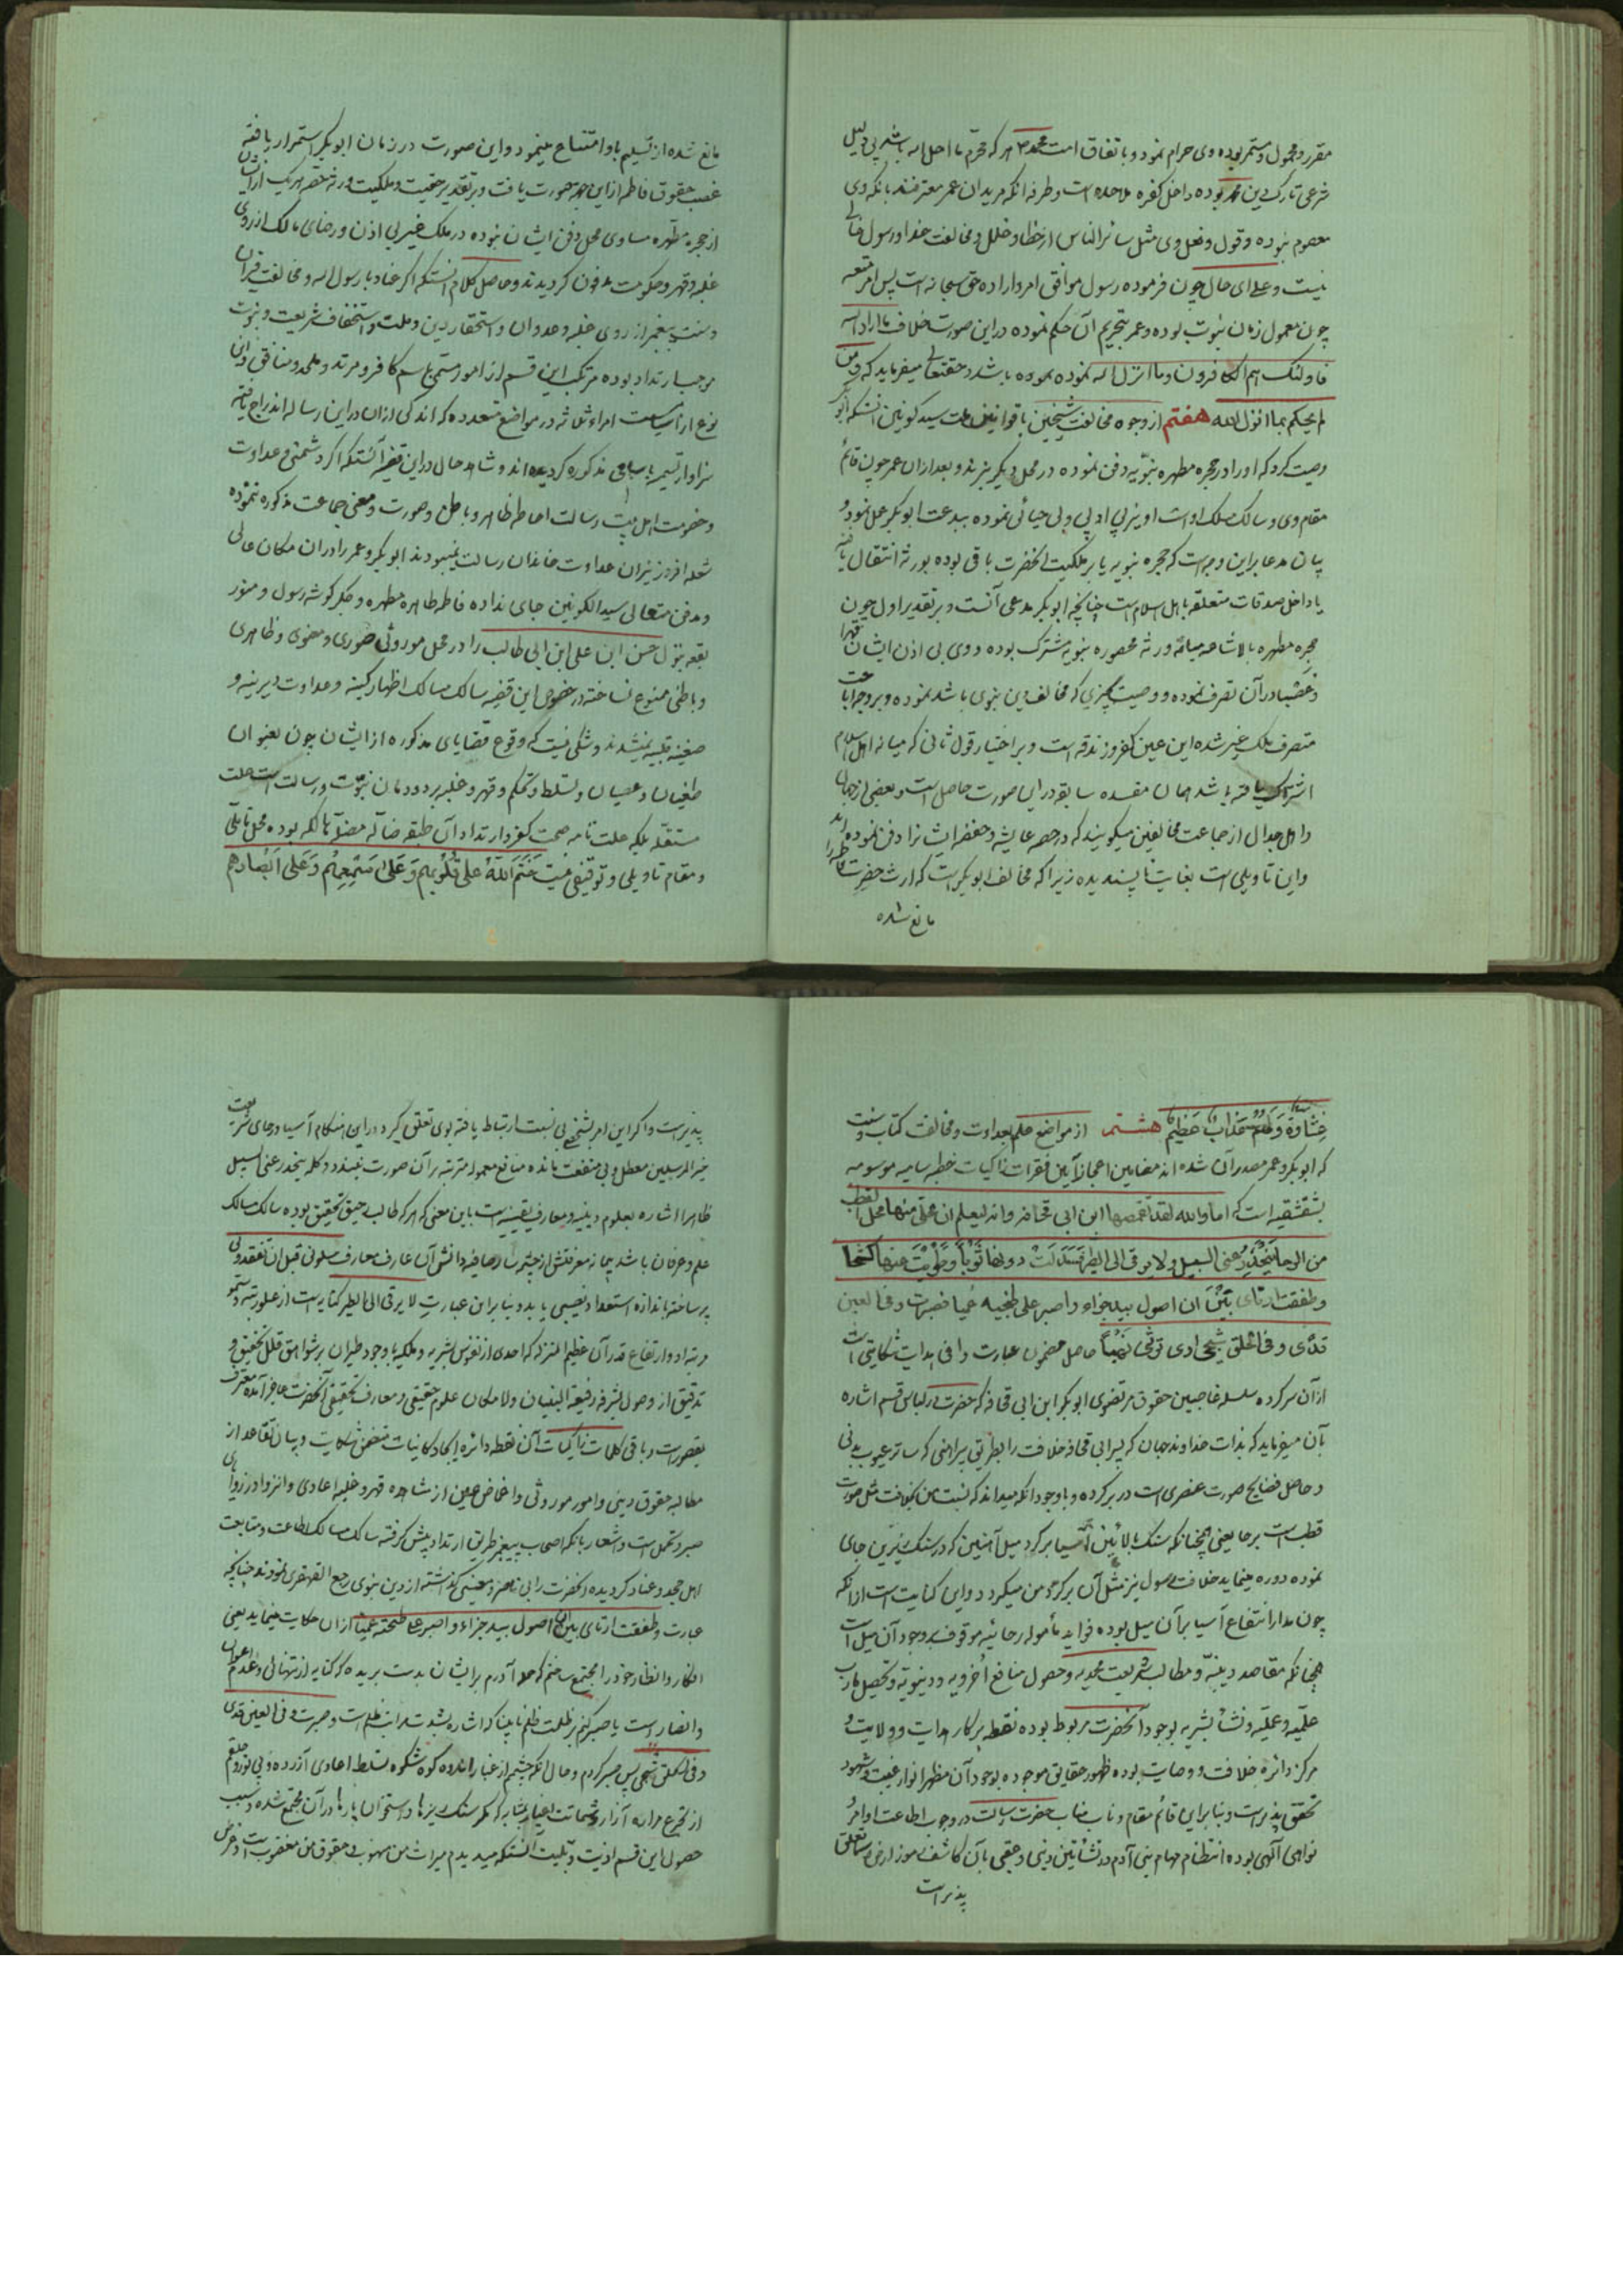 مقرر و معمول و مستمر بوده وی حرام نمود و باتفاق امت محمد هر که تحرّم ما احل الله باشد بی دلیل
شرعی تارک دین محمد بوده داخل کفره ملاحده است و طرفه آنکه مریدان عمر معترفند بآنکه وی
معصوم نبوده و قول و فعل وی مثل سائر الناس از خطا و خلل و مخالفت خدا و رسول خالی
نیست و علی ای حال چون فرموده رسول موافق امر و اراده حق سبحانه است پس امر متعه
چون معمول زمان نبوت بوده و عمر بتحریم آن حکم نموده در این صورت خلاف ما اراد الله
فاولئک هم الکافرون و ما انزل الله نموده باشد و حقتعالی میفرماید که و من
لم یحکم بما انزل الله هفتم از وجوه مخالفت شیخین با قوانین ملت سید کونین آنستکه ابو بکر
وصیت کرد که او را در حجره مطهره نبویّه دفن نموده در محل دیگر نبرند و بعد از آن عمر چون قائم
مقام وی و سالک مسلک او است او نیز بی ادبی و بی حیائی نموده ببدعت ابو بکر عمل نمود و
بیان مدعا براین وجه است که حجره نبویه یا بر ملکیت آنحضرت باقی بوده بورثه انتقال یافته
یا داخل صدقات متعلقه باهل اسلام است چنانچه ابو بکر مدعی آنست و بر تقدیر اول چون
حجره مطهره بالاشاعه میانه ورثه محصوره نبویه مشترک بوده و وی بی اذن ایشان قهرا
و غصبا در آن تصرف نموده و وصیت بچیزی که مخالف دین نبوی باشد نموده و بر وجه اباحت
متصرف ملک غیر شده این عین کفر و زندقه است و بر اختیار قول ثانی که میانه اهل اسلام
اشتراک یافته باشد همان مفسده سابقه در این صورت حاصل است و بعضی از جهال
و اهل جدال از جماعت مخالفین میگویند که در حصه عایشه و حفصه ایشانرا دفن نموده اند
و این تاویلی است بغایت ناپسندیده زیرا که مخالف ابو بکر است که ارث حضرت فاطمه را
مانع شده
مانع شده از تسلیم باو امتناع مینمود و این صورت در زمان ابو بکر استمرار یافته
غصب حقوق فاطمه از این جهة صورت یافت و بر تقدیر حقیت و ملکیت ورثه حصه هر یک از ایشان
از حجره مطهره مساوی محل دفن ایشان نبوده در ملک غیر بی اذن و رضای مالک از روی
غلبه و قهر و حکومت مدفون گردیدند و حاصل کلام آنستکه اگر عناد با رسول الله و مخالفت قرآن
و سنت پیغمبر از روی غلبه و عدوان و استحقار دین و ملت و استخفاف شریعت و نبوت
موجب ارتداد بوده مرتکب این قسم از امور مستمی باسم کافر و مرتد و ملحد و منافق و این
نوع از اسامیست امراء ثلاثه در مواضع متعدده که اندکی از ان در این رساله اندراج یافته
سزاوار تسمیه باسامی مذکوره گردیده اند و شاهد حال در این قضیه آنستکه اگر دشمنی و عداوت
و خصومت اهل بیت رسالت احاطه ظاهر و باطن و صورت و معنی جماعت مذکوره ننموده
شعله افروز نیران عداوت خاندان رسالت نمیبودند ابو بکر و عمر را در ان مکان عالی
و مدفن متعالی سید الکونین جای نداده فاطمه طاهره مطهره و جگر گوشه رسول و منور
بقعه بتول حسن ابن علی ابن ابی طالب را در محل موروثی صوری و معنوی و ظاهری
و باطنی ممنوع نساخته در خصوص این قضیه سالک مسالک اظهار کینه و عداوت دیرینه و
ضغینه قلبیه نمیشدند و شکی نیست که وقوع قضایای مذکوره از ایشان چون بعنوان
طغیان و عصیان و تسلط و تحکم و قهر و غلبه بر دودمان نبوّت و رسالت است علت
مستقله بلکه علت تامه صحت کفر و ارتداد آن طبقه ضاله مضلّه هالکه بوده محل تاملی
و مقام تاویلی و توقّفی نیست خَتَمَ اللّهُ عَلی قُلُوبِهِم وَ عَلی سَمعِهِم وَ عَلی اَبصارِهِم
غِشاوَةٌ وَ لَهُم عَذابٌ عَظیمٌ هشتم از مواضع علم بعداوت و مخالفت کتاب و سنت
که ابو بکر و عمر مصدر آن شده اند مضامین اعجاز آیین فقرات زاکیات خطبه سامیه موسومه
بشقشقیه است که اما والله لقد تقمصها ابن ابی قحافه و انه لیعلم ان محلّی منها محل القطب
من الرحا ینحدر عنی السیل و لا یرقی الی الطیر فَسَدَلتُ دونها ثَوباً و طَوَیتُ عنها کشحا
و طفقت ارتای بَینَ ان اصول بید جذاء و اصبر علی طخیه عمیا فصبرت و فی العین
قذی و فی الحلق شجی اری تراثی نهباً حاصل مضمون عبارت وافی هدایت شکایتی است
از آن سرکرده سلسله غاصبین حقوق مرتضوی ابو بکر ابن ابی قحافه که حضرت در لباس قسم اشاره
بآن میفرماید که بذات خداوند جهان که پسر ابی قحافه خلافت را بطریق پیراهنی که ساتر عیوب بدنی
و حاصل فضایح صورت عنصری است در بر کرده و باوجود آنکه میداند که نسبت من بخلافت مثل صورت
قطب است برحا یعنی همچنانکه سنگ بالائین آسیا بر گرد میل آهنین که در سنگ زیرین جای
نموده دوره مینماید خلافت رسول نیز مثل آن بر گرد من میگردد و این کنایت است از آنکه
چون مدار انتفاع آسیا بر آن میل بوده فواید مأموله رحائیه موقوف بوجود آن میل است
همچنانکه مقاصد دینیّه و مطالب شریعت محمدیه و حصول منافع اخرویه و دنیویّه و تحصیل مارب
علمّیه و عملیّه و نشأ بشریه بوجود آنحضرت مربوط بوده نقطه پرگار هدایت و ولایت و
مرکز دائره خلافت و وصایت بوده ظهور حقایق موجوده بوجود آن مظهر انوار غیب و شهود
تحقق پذیر است و بنابراین قائم مقام و ناب مناب حضرت رسالت در وجوب اطاعت اوامر
نواهی آلهی بوده انتظام مهام بنی آدم در نشأتین دینی و عقبی بآن کاشف رموز ارض و سما تعلق
پذیر است
پذیر است و اگر این امر بشخصی بی نسبت ارتباط یافته بوی تعلق گیرد در این هنگام آسیا و رحای شریعت
خیر المرسلین معطل و بی منفعت مانده منافع معموله مترتبه بر آن صورت نبندد و کلمه ینحدر عنی السیل
ظاهرا اشاره بعلوم دینیه و معارف یقینیه است باین معنی که هر که طالب رحیق تحقیق بوده سالک مسالک
علم و عرفان باشد پیمانه معرفتش از چشمه سار صافیه دانش آن عارف معارف سلونی قبل ان تفقدونی
پر ساخته باندازه استعداد نصیبی یابد و بنابراین عبارت لا یرقی الی الطیر کنایه است از علو رتبه و سمو
مرتبه او و ارتفاع قدر آن عظیم المنزله که احدی از نفوس بشریه و ملکیه باوجود طیران بر شواهق قلل تحقیق و
تدقیق از وصول بشرفه رفیعة البنیان و لامکان علوم حقیقی و معارف تحقیقی آنحضرت عاجز آمده معترف
بقصور است و باقی کلمات زاکیات آن نقطه دائره ایجاد کائنات متضمن شکایت و بیان تقاعد از
مطالبه حقوق دینی و امور موروثی و اغماض عین از مشاهده قهر و غلبه اعادی و انزوا در زوایای
صبر و تحمل است و اشعار بآنکه اصحاب پیغمبر طریق ارتداد پیش گرفته سالک مسالک اطاعت و متابعت
اهل جحد و عناد گردیده آنحضرت را بی ناصر و معینی گذاشته از دین نبوی رجع القهقری نمودند چنانچه
عبارت و طفقت ارتای بین ان اصول بید جذاء و اصبر علی طخیه عمیا از ان حکایت مینماید یعنی
افکار و انظار خود را مجتمع ساختم که حمله آورم بر ایشان بدست بریده که کنایه از تنهائی و عدم اعوان
و انصار است یا صبر کنم بر ظلمت ظلم نابینا که اشاره بشدت مراتب ظلم است و صبرت و فی العین قذی
و فی الحلق شجی پس صبر کردم و حال آنکه چشمم از غبار اندوه کوه شکوه تسلط اعادی آزرده و بی نور و حلقم
از تجرع مراره آزار و شماتت اغیار بمثابه که مگر سنگ ریزها و استخوان پارها در آن مجتمع شده و سبب
حصول این قسم اذیت و بلیت آنستکه میدیدم میراث من منهوب و حقوق من مغصوب است و غرض